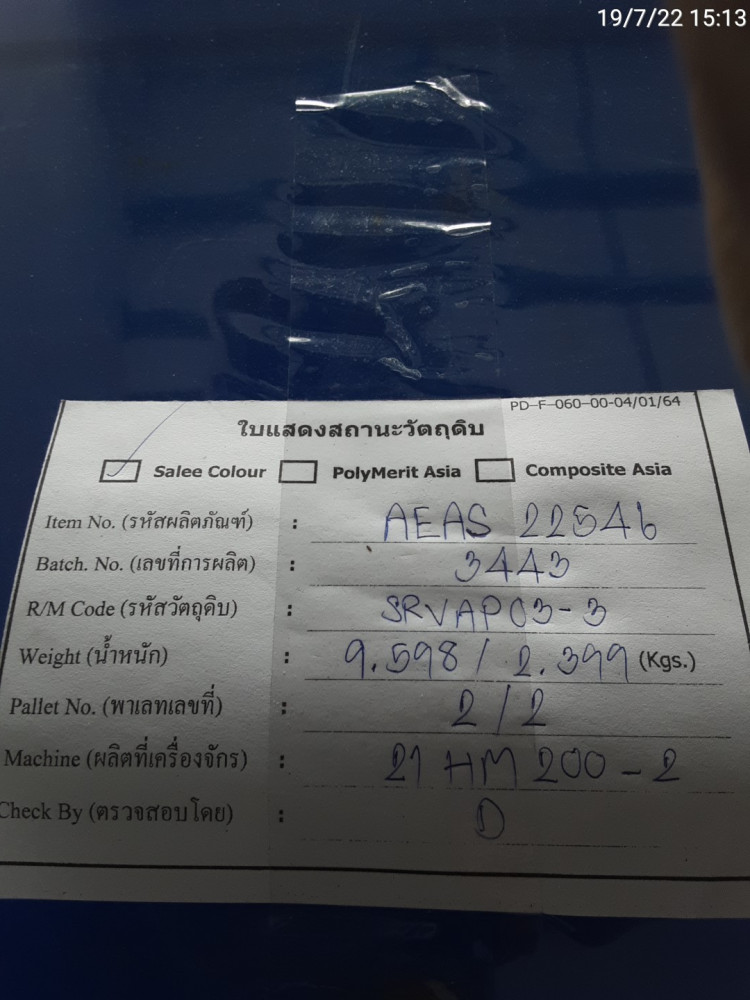 19/7/22 15:13
PD-F-060-00-04/01/64
ใบแสดงสถานะวัตถุดิบ
Salee Colour PolyMerit Asia Composite Asia
Item No. (รหัสผลิตภัณฑ์) : AEAS 22546
Batch. No. (เลขที่การผลิต) : 3443
R/M Code (รหัสวัตถุดิบ) : SRVAP03-3
Weight (น้ำหนัก) : 9.598 / 2.399 (Kgs.)
Pallet No. (พาเลทเลขที่) : 2/2
Machine (ผลิตที่เครื่องจักร) : 21 HM 200-2
Check By (ตรวจสอบโดย) : D